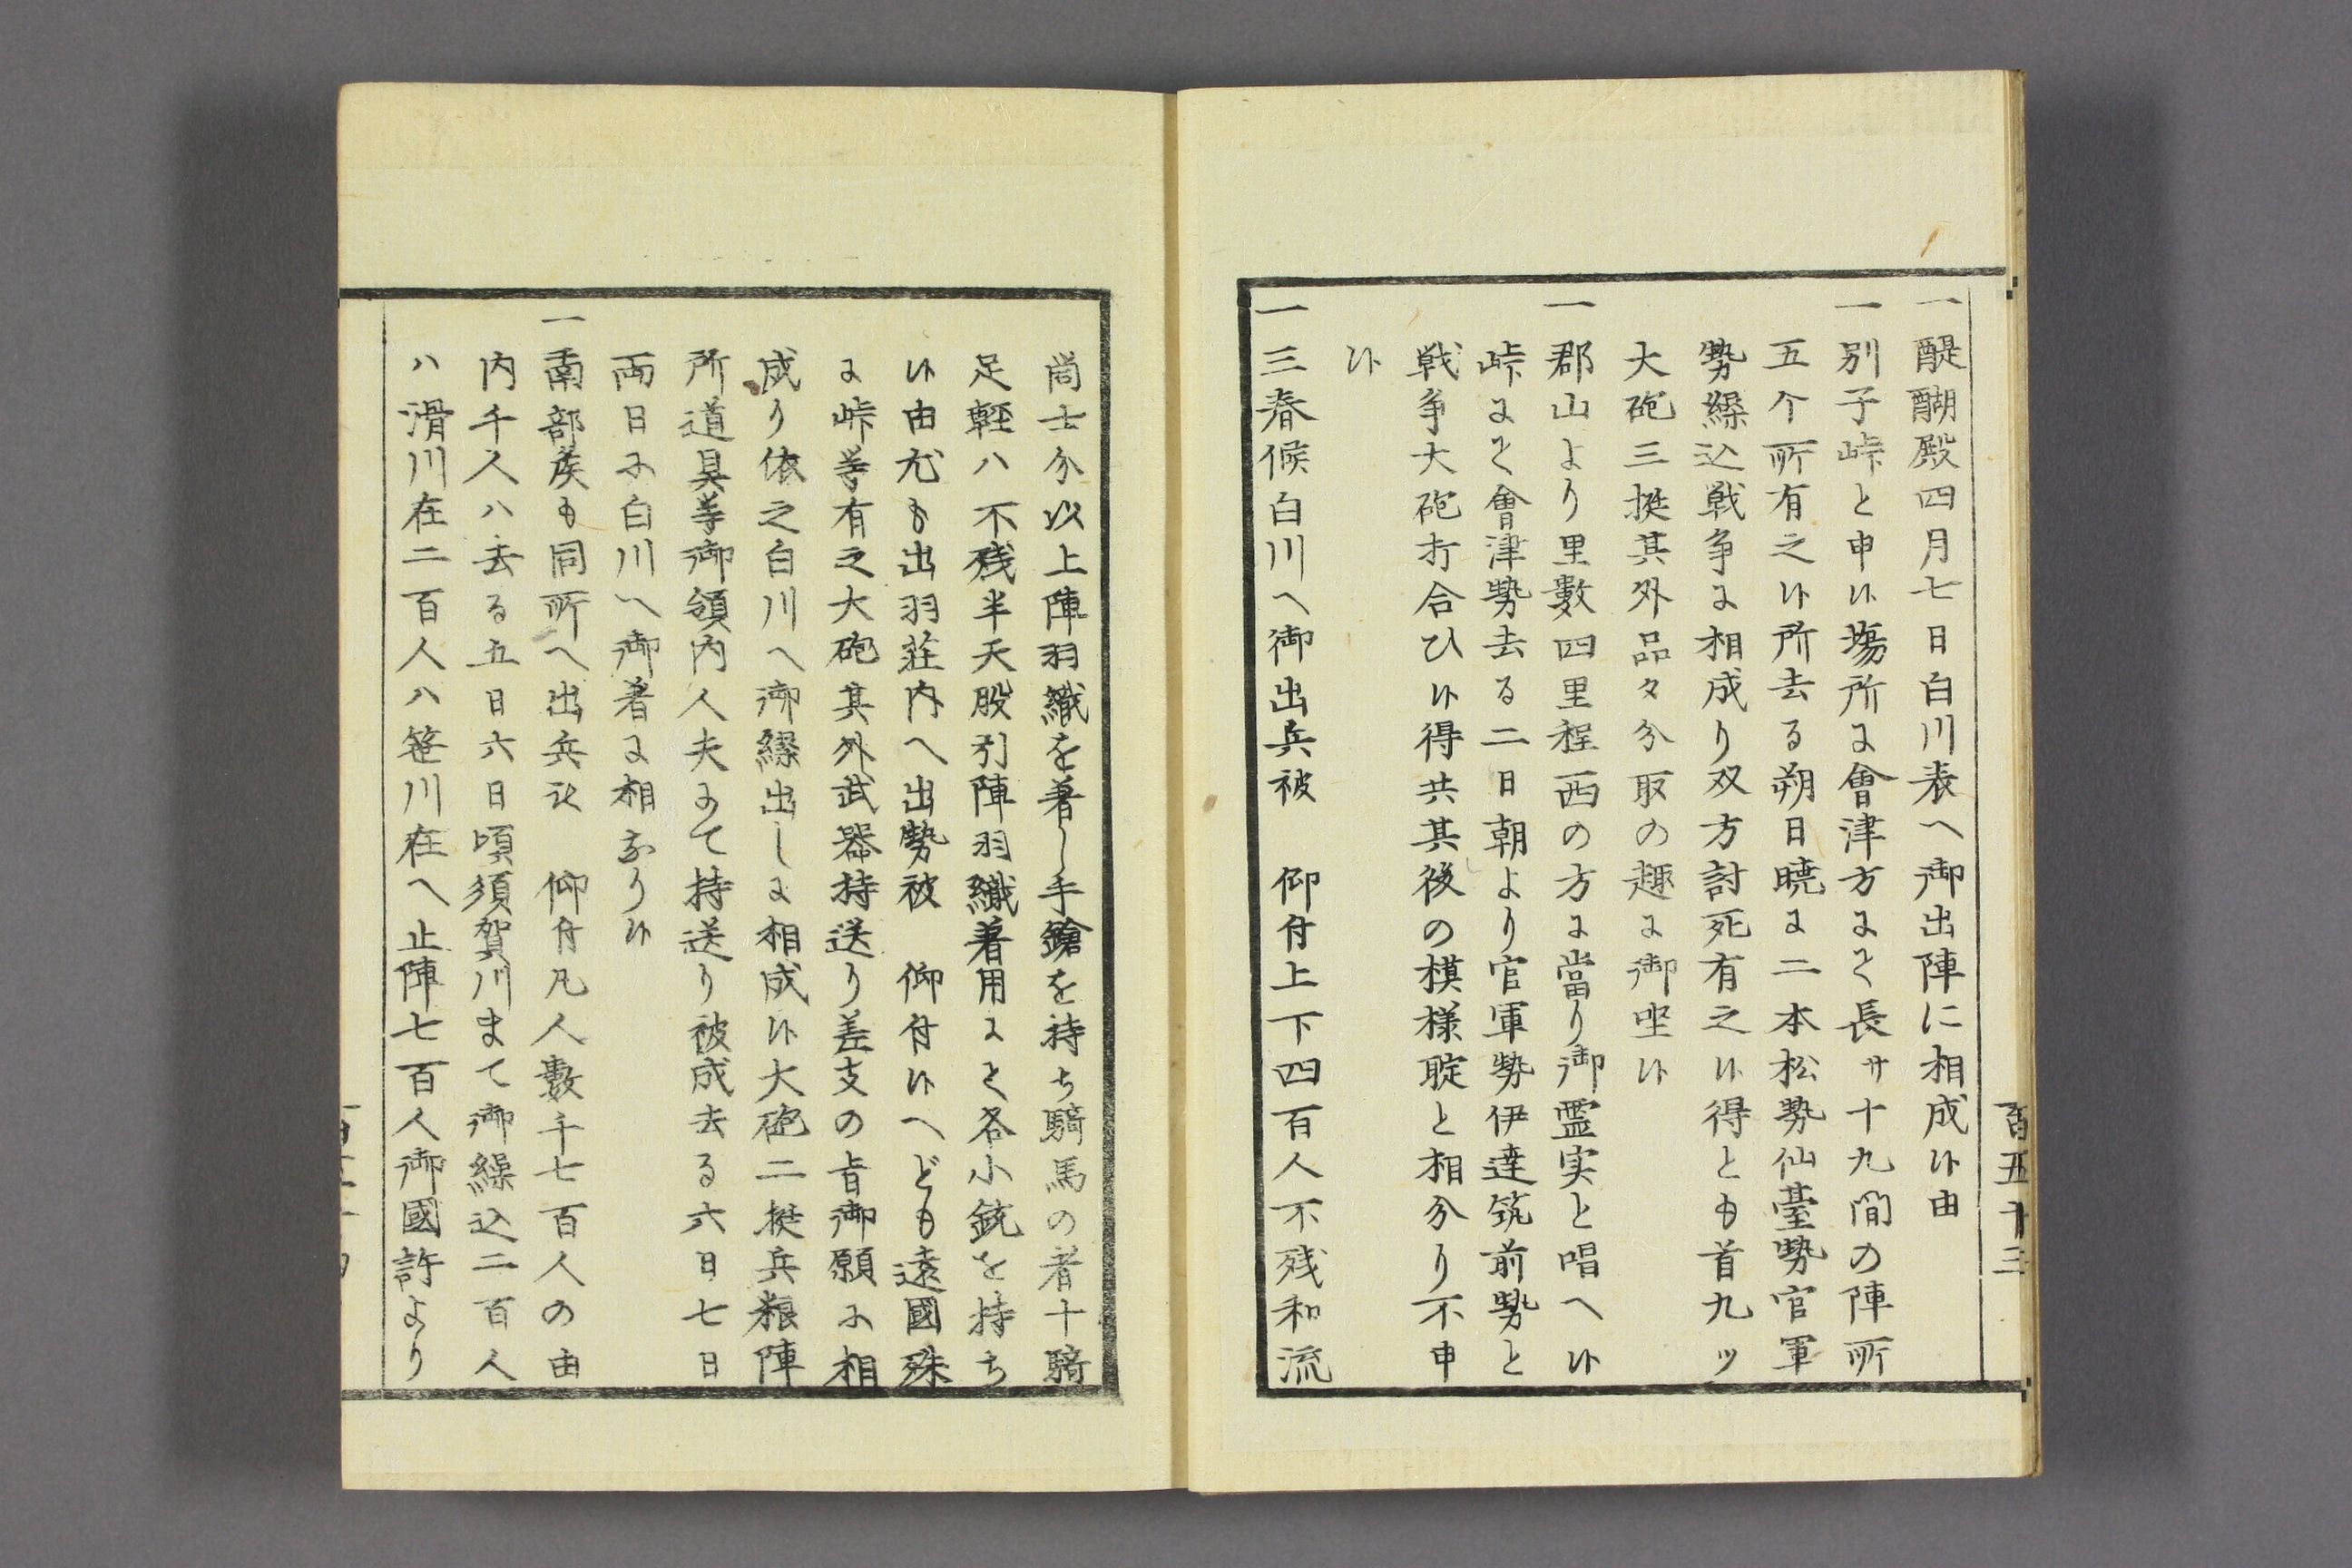 百五十三
一醍醐殿四月七日白川表へ御出陣に相成候由
一別子峠と申候場所に會津方にて長サ十九間の陣所
五个所有之候所去る朔日暁に二本松勢仙臺勢官軍
勢繰込戦争に相成り双方討死有之候得とも首九ッ
大砲三挺其外品々分取の趣に御坐候
一郡山より里數四里程西の方に當り御霊実と唱へ候
峠にて會津勢去る二日朝より官軍勢伊達筑前勢と
戦争大砲打合ひ候得共其後の模様聢と相分り不申
候
一三春候白川へ御出兵被 仰付上下四百人不残和流
尚士分以上陣羽織を著し手鎗を持ち騎馬の者十騎
足軽ハ不残半天股引陣羽織着用にて各小銃を持ち
候由尤も出羽荘内へ出勢被 仰付候へども遠國殊
に峠等有之大砲其外武器持送り差支の旨御願に相
成り依之白川へ御繰出しに相成候大砲二挺兵粮陣
所道具等御領内人夫にて持送り被成去る六日七日
両日に白川へ御着に相なり候
一南部矦も同所へ出兵被 仰付凡人數千七百人の由
内千人ハ去る五日六日頃須賀川まて御繰込二百人
ハ滑川在二百人ハ笹川在へ止陣七百人御國許より